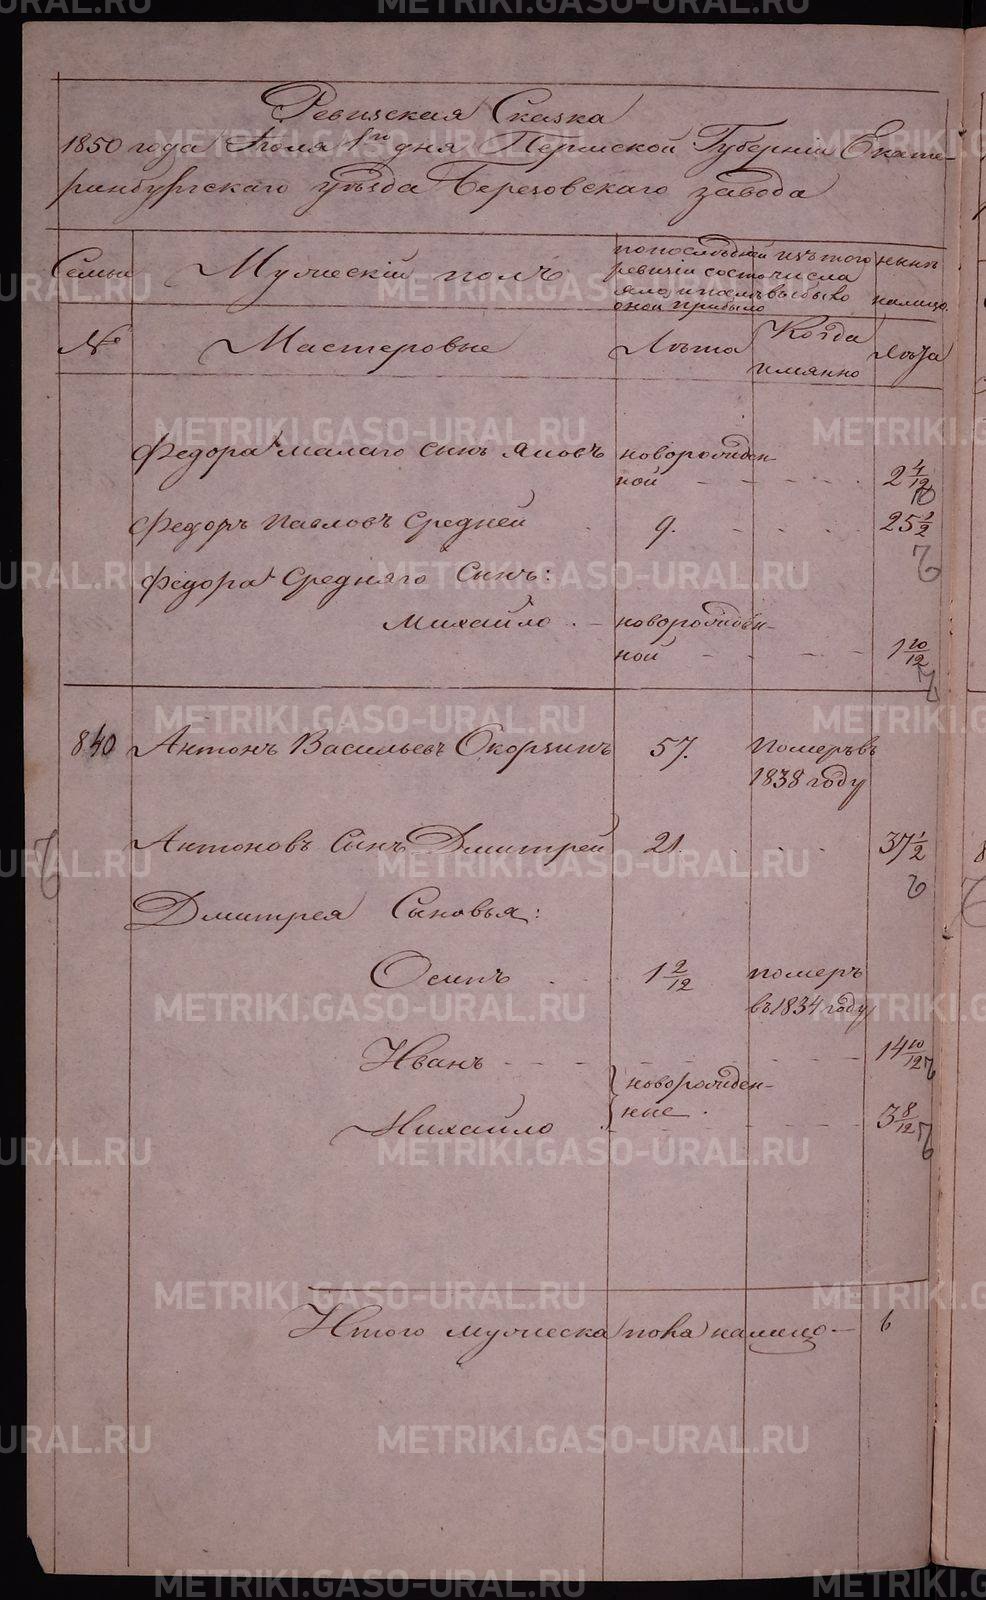 Ревизская Сказка
1850 года Июля 1го дня Пермской Губернiи Екате-
ринбургскаго уѣзда Березовскаго завода
Семьи
Мужескiй полъ
по последней
ревизiи состо
яло, и послѣ
оной прибыло
изъ того
числа
выбыло
нынѣ
налицо
№
Мастеровые
Лѣта
Когда
имянно
Лѣта
Федора малаго сынъ новорожден-
ной 2 4/12
Федоръ Павловъ Средней 9. 25 1/2
Федора Средняго Сынъ:
Михайло новорожден-
ной 1 10/12
840 Антонъ Васильевъ Окорзинъ 57. Померъ въ
1838 году
Антоновъ Сынъ Дмитрей 21. 37 1/2
Дмитрея Сыновья:
Осипъ 1 2/12 померъ
въ 1834 году
Иванъ 14 10/12
новорожден-
ные.
Михайло 3 8/12
Итого мужеска пола налицо 6
METRIKI.GASO-URAL.RU